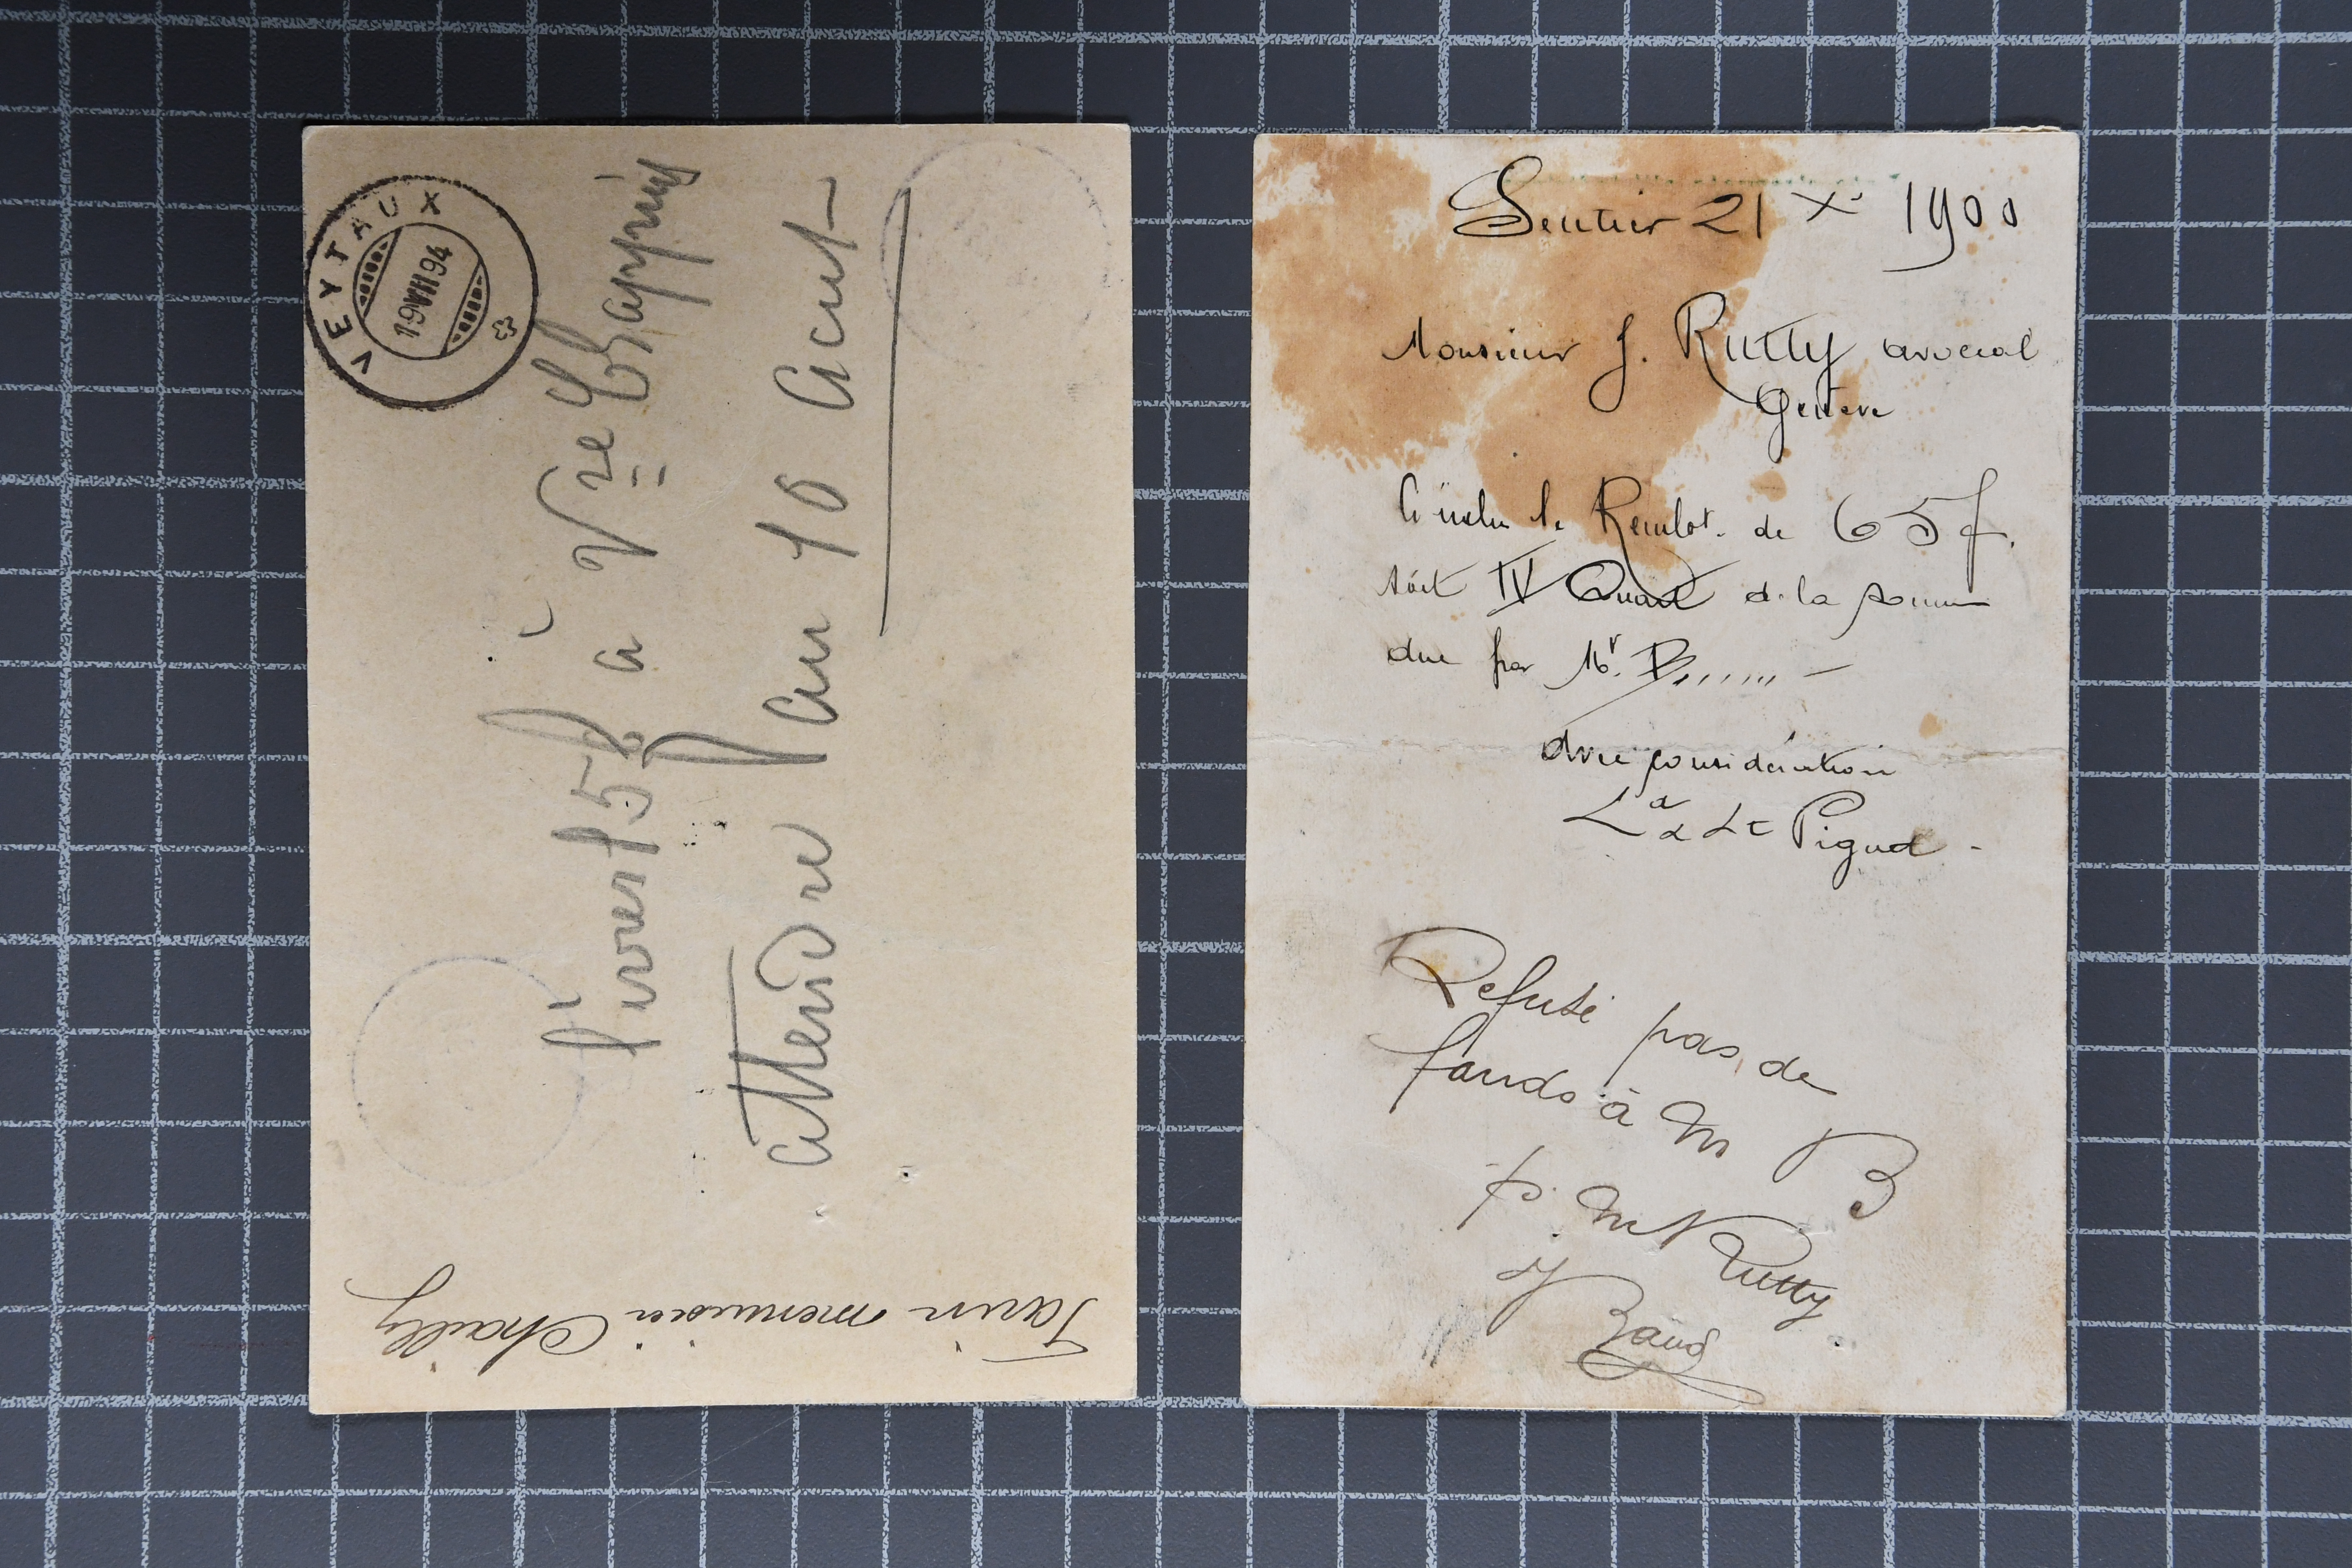 VEYTAUX
19 VIII 94
versé 15 f à Vve Chappuis
attendre au 10 Acut
Tarin menuisier Chailly
Sentier 21 X 1900
Monsieur J. Rutty avocat
Genève
Ci inclus le Rembt. de 65 f.
soit IV Quart de la somme
due par Mr. B,,,,,, —
avec considération
Piguet
Refusé pas de
fonds à M B
p. Mr Rutty
J Baud